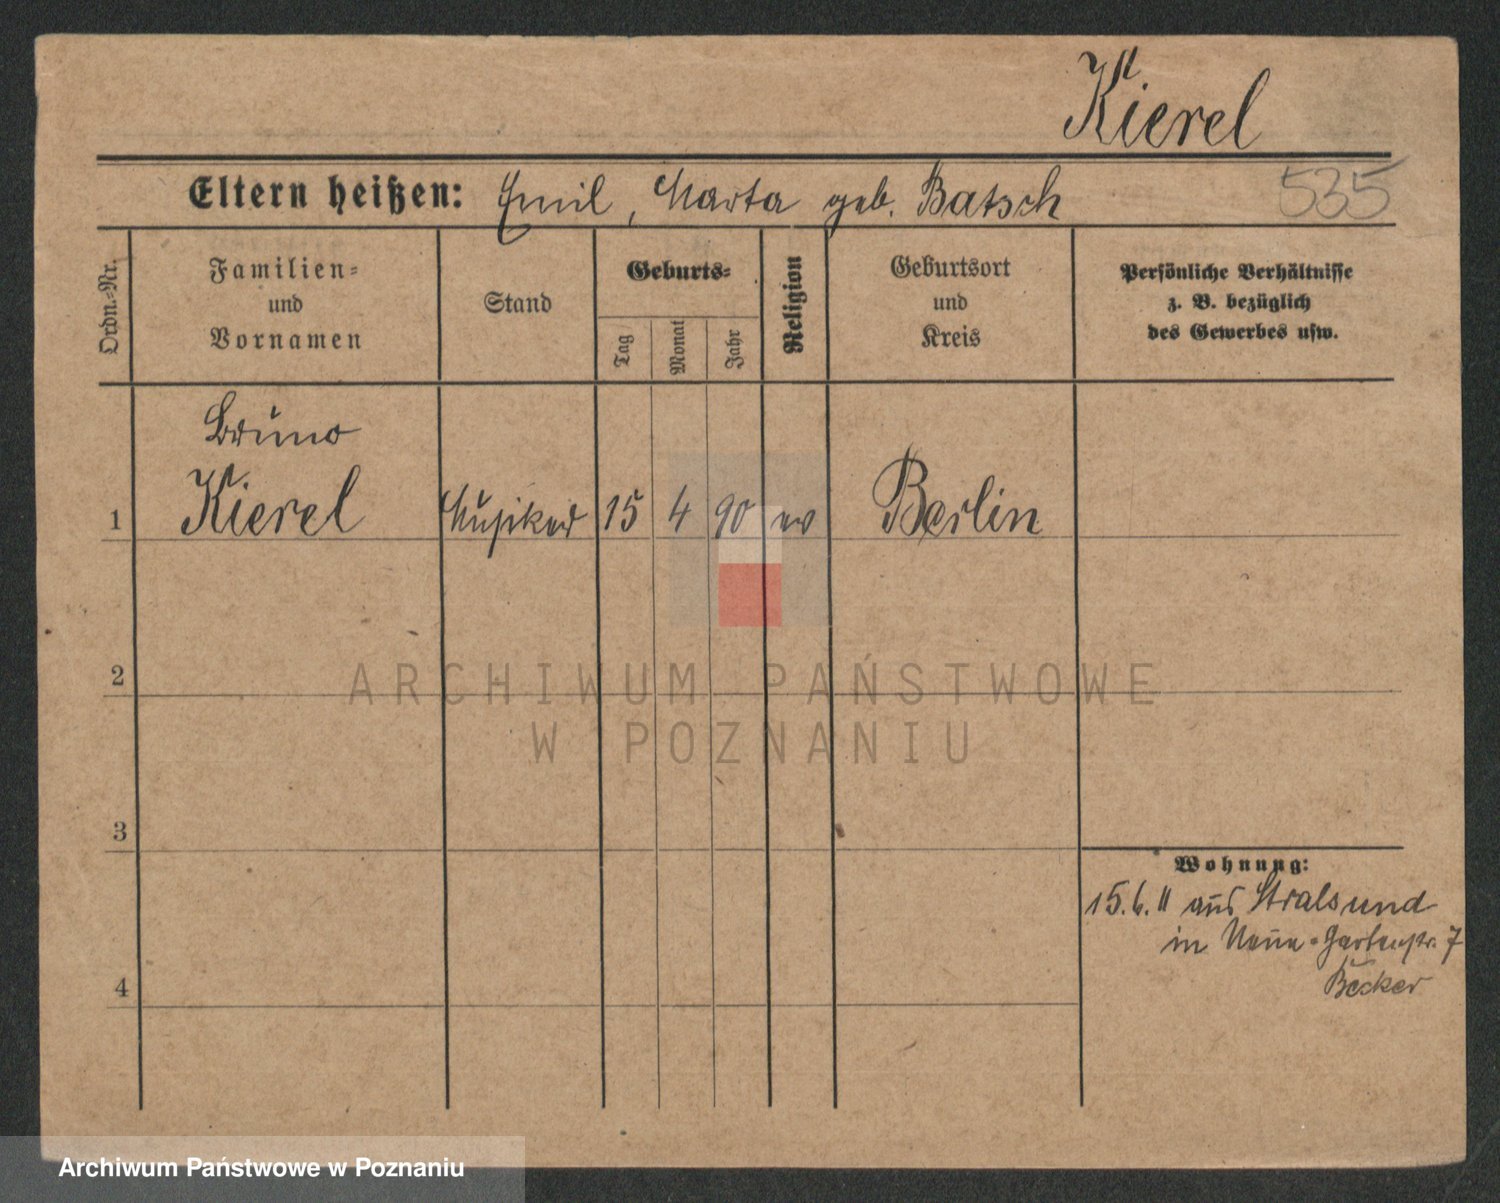 Kierel
Eltern heißen: Emil, Marta geb. Batsch
535
Ordn.-Nr.
Familien-
und
Vornamen
Stand
Geburts-
Tag
Monat
Jahr
Religion
Geburtsort
und
Kreis
Persönliche Verhältnisse
z. B. bezüglich
des Gewerbes usw.
Bruno
1 Kierel Musiker 15 4 90 ev Berlin
2
ARCHIWUM PAŃSTWOWE
W POZNANIU
3
Wohnung:
15.6.11 aus Stralsund
in Neue-Gartenstr. 7
Becker
4
Archiwum Państwowe w Poznaniu